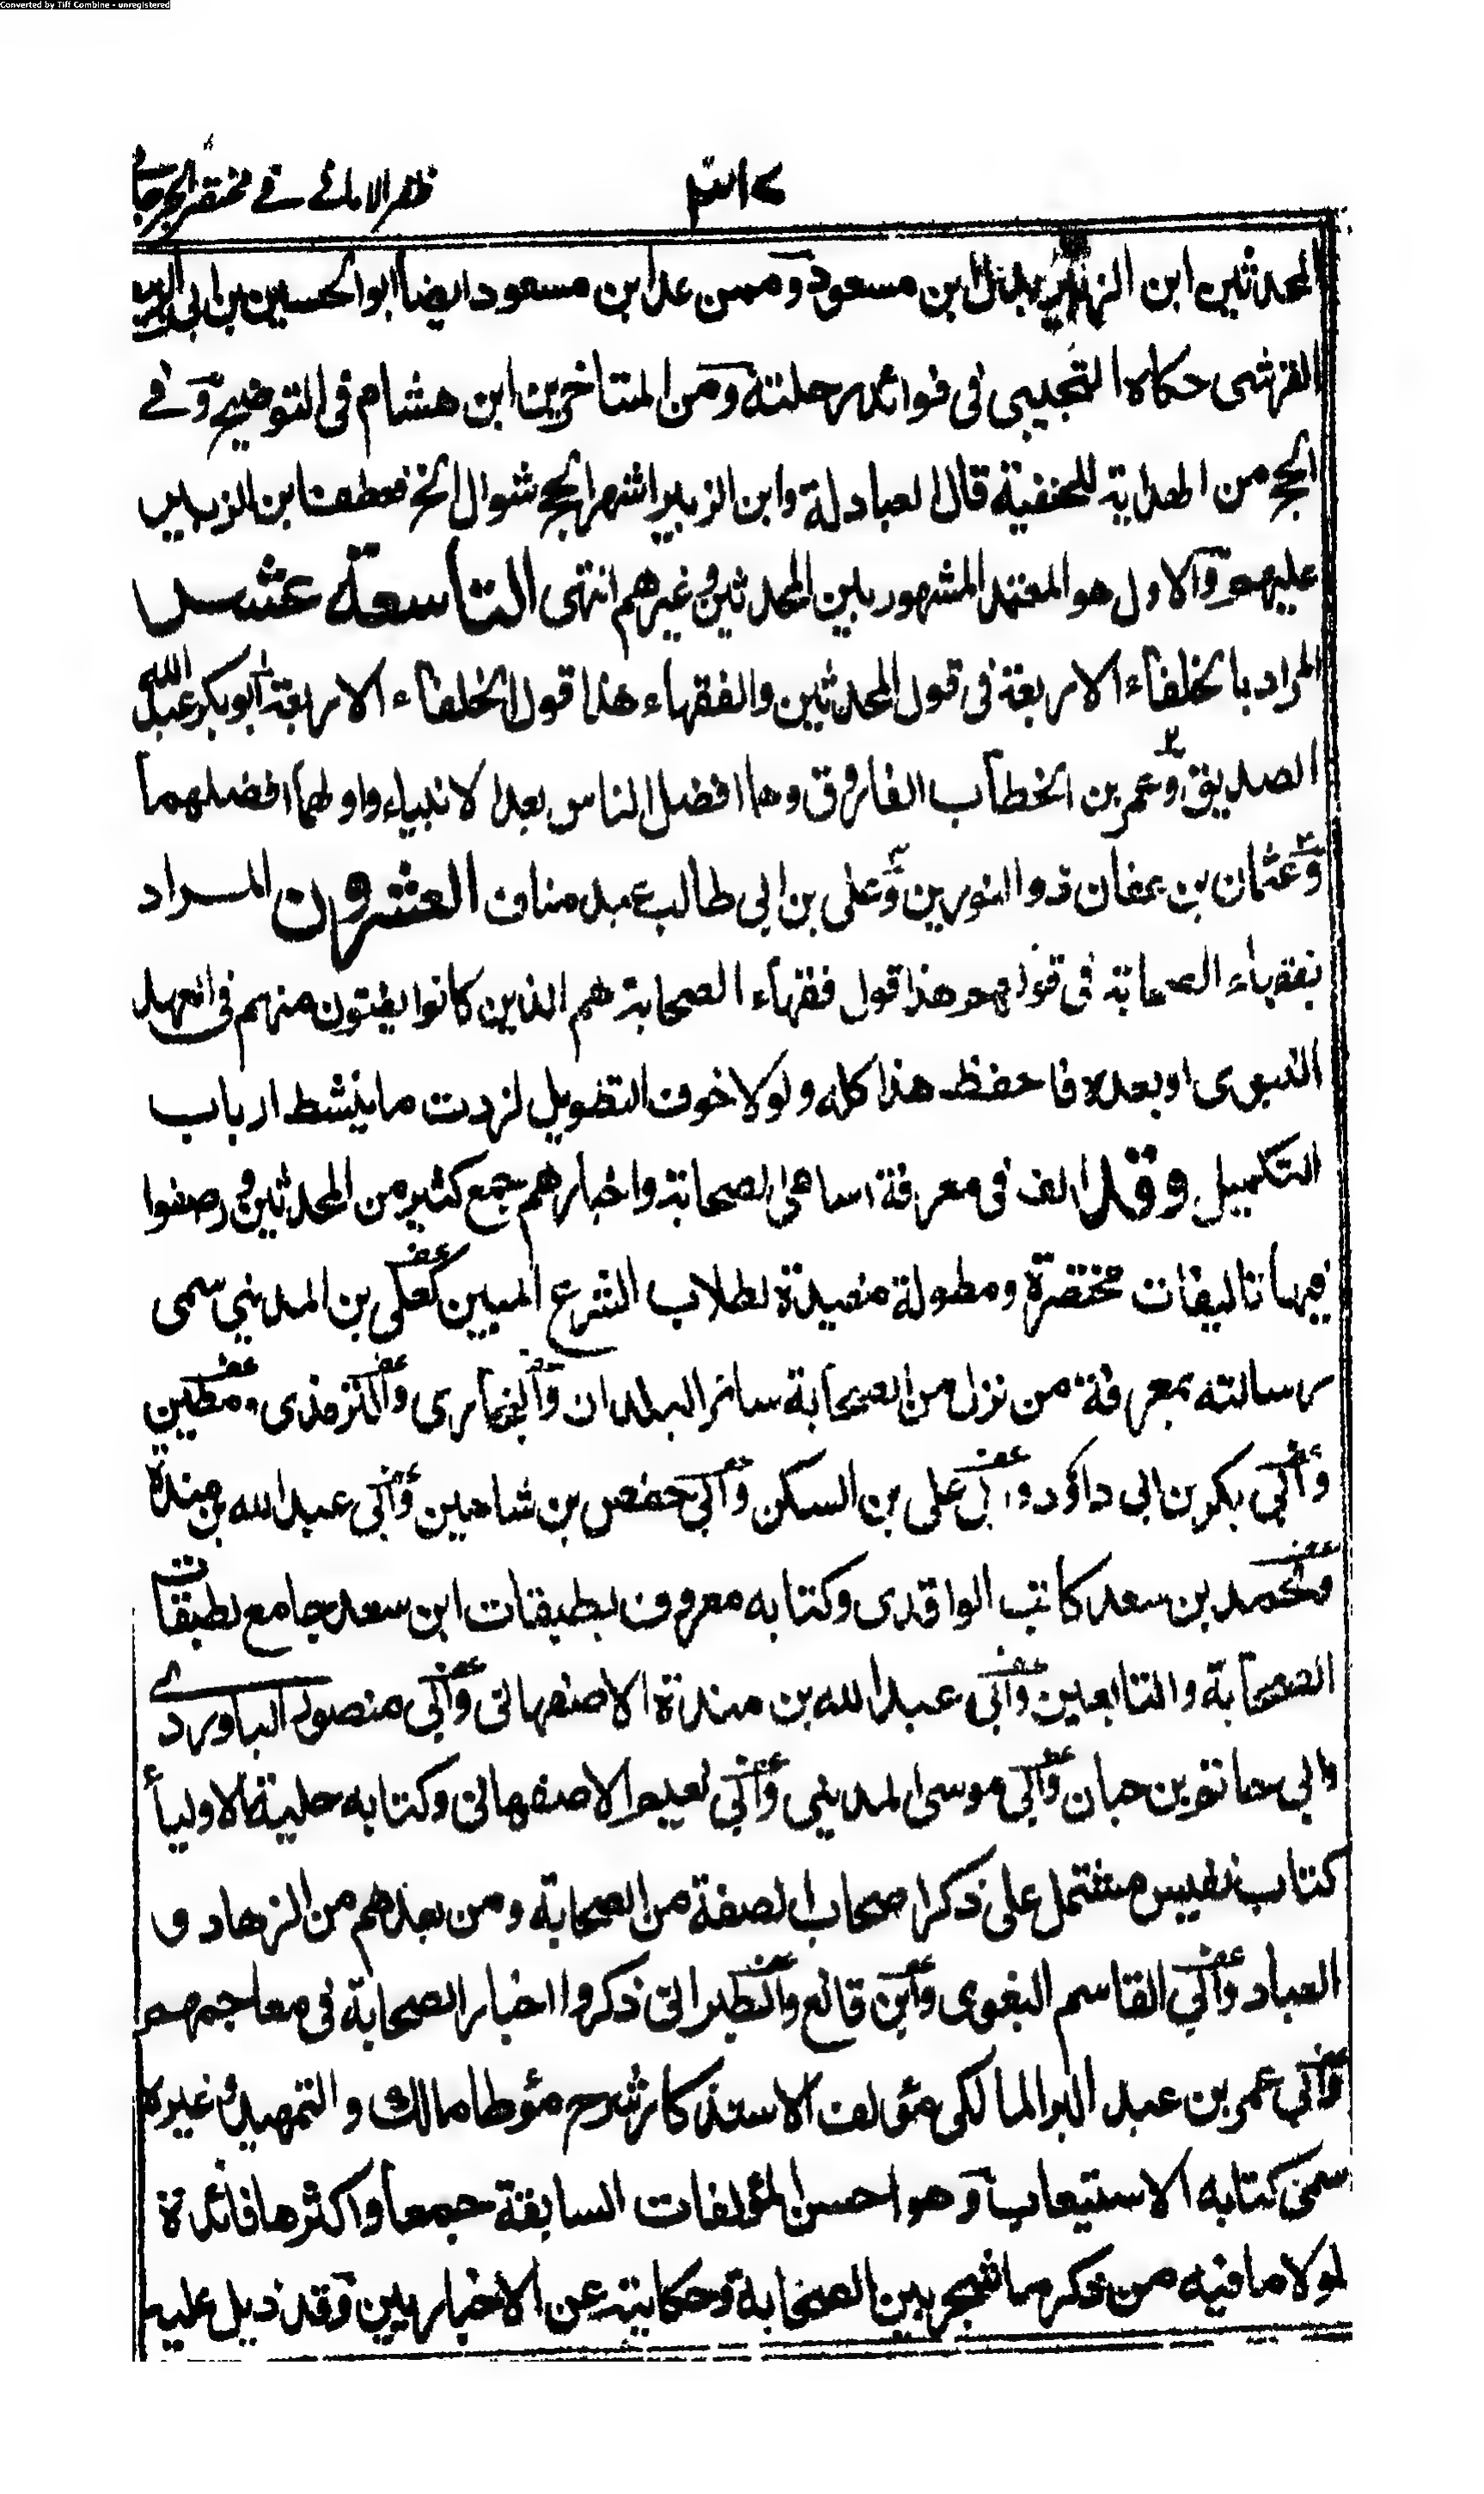 Converted by Tiff Combine - unregistered
ظفر الامانے فے مختصر الجرجانے
المحدثین ابن الزبیر بدل ابن مسعود وممن عد ابن مسعود ایضا ابو الحسین بن ابی الربیع
القرشی حکاہ التجیبی فی فوائد رحلتہ ومن المتاخرین ابن هشام فی التوضیح وفے
الحج من الهدایة للحنفیة قال العبادلة وابن الزبیر اشهر الحج شوال الخ فعطف ابن الزبیر
علیهم والاول هو المعتمد المشهور بین المحدثین وغیرهم انتهی التاسعة عشر
المراد بالخلفاء الاربعة فی قول المحدثین والفقهاء هذا قول الخلفاء الاربعة ابو بکر عبد الله
الصدیق وعمر بن الخطاب الفاروق وهما افضل الناس بعد الانبیاء واولهما افضلهما
وعثمان بن عفان ذو النورین وعلی بن ابی طالب عبد مناف العشرون المراد
بفقهاء الصحابة فی قولهم هذا قول فقهاء الصحابة هم الذین کانوا یفتون منهم فی العهد
النبوی او بعده فاحفظ هذا کله ولولا خوف التطویل لزدت ما ینشط ارباب
التکمیل وقد الف فی معرفة اسامی الصحابة واخبارهم جمع کثیر من المحدثین ورصفوا
فیها تالیفات مختصرة ومطولة مفیدة لطلاب الشرع المبین کعلی بن المدینی سمی
رسالته بمعرفة من نزل من الصحابة سائر البلدان والبخاری والترمذی ومطین
وابی بکر بن ابی داؤد وابی علی بن السکن وابی حفص بن شاهین وابی عبد الله بن مندة
ومحمد بن سعد کاتب الواقدی وکتابه معروف بطبقات ابن سعد جامع لطبقات
الصحابة والتابعین وابی عبد الله بن مندة الاصفهانی وابی منصور الباوردے
وابی حاتم بن حبان وابی موسی المدینی وابی نعیم الاصفهانی وکتابه حلیة الاولیاء
کتاب نفیس مشتمل علی ذکر اصحاب الصفة من الصحابة ومن بعدهم من الزهاد و
العباد وابی القاسم البغوی وابن قانع والطبرانی ذکروا اخبار الصحابة فی معاجمهم
وابی عمر بن عبد البر المالکی مؤلف الاستذکار شرح مؤطا مالك والتمهید وغیره
سمی کتابه الاستیعاب وهو احسن المؤلفات السابقة جمعا واکثرها فائدة
لولا ما فیه من ذکر ما شجر بین الصحابة وحکایته عن الاخباریین وقد ذیل علیه